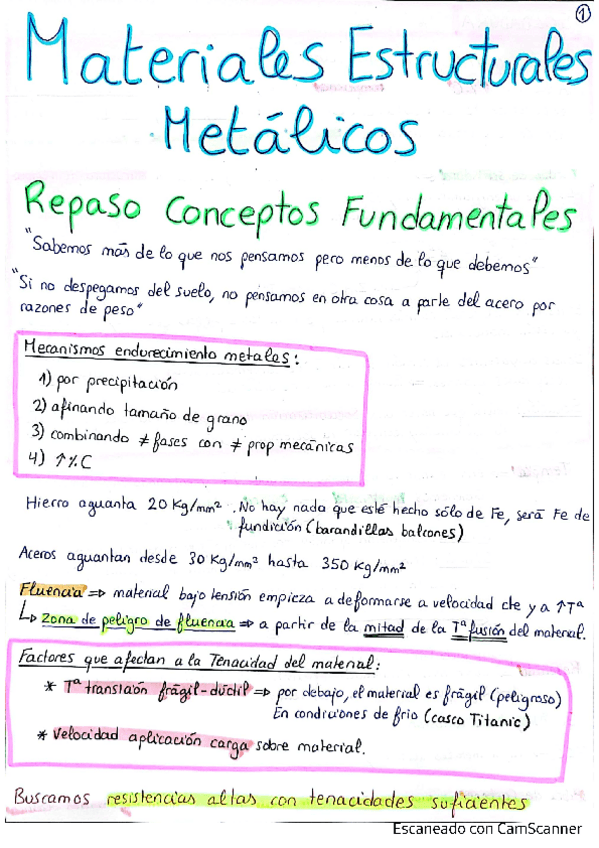 1
Materiales Estructurales
Metálicos
Repaso Conceptos Fundamentales
"Sabemos más de lo que nos pensamos pero menos de lo que debemos"
"Si no despegamos del suelo, no pensamos en otra cosa a parte del acero por
razones de peso"
Mecanismos endurecimiento metales:
1) por precipitación
2) afinando tamaño de grano
3) combinando ≠ fases con ≠ prop mecánicas
4) ↑%C
Hierro aguanta 20 Kg/mm². No hay nada que esté hecho sólo de Fe, será Fe de
fundición (barandillas balcones)
Aceros aguantan desde 30 Kg/mm² hasta 350 Kg/mm²
Fluencia => material bajo tensión empieza a deformarse a velocidad cte y a ↑Tª
↳ Zona de peligro de fluencia => a partir de la mitad de la Tª fusión del material.
Factores que afectan a la Tenacidad del material:
* Tª transición frágil-dúctil => por debajo, el material es frágil (peligroso)
En condiciones de frío (casco Titanic)
* Velocidad aplicación carga sobre material.
Buscamos resistencias altas con tenacidades suficientes
Escaneado con CamScanner